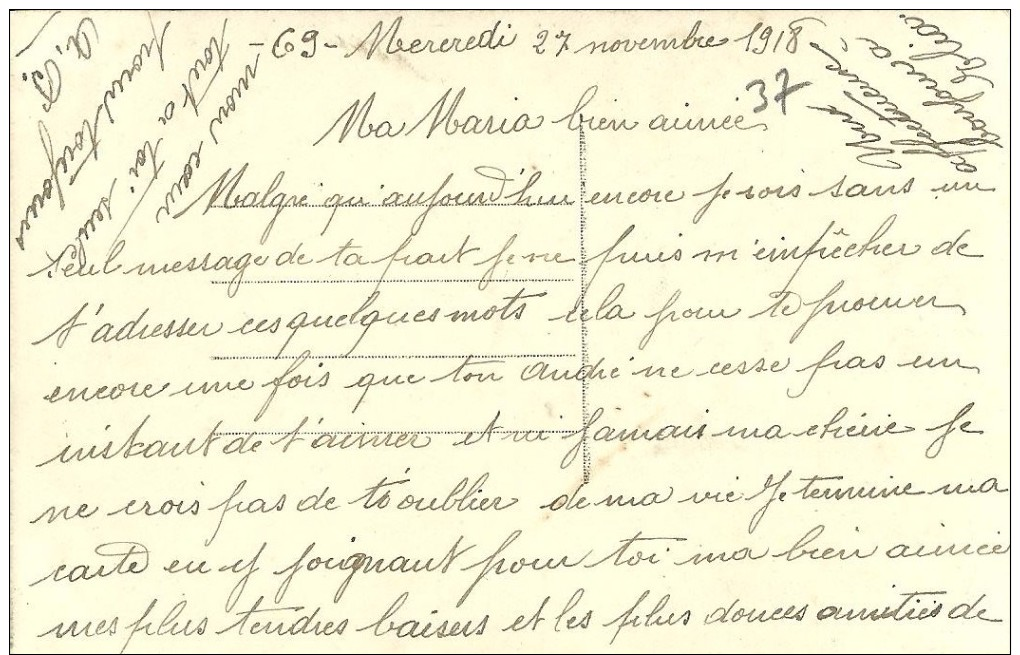 -69- Mercredi 27 novembre 1918
37
Ma Maria bien aimée
Malgré qu'aujourd'hui encore je sois sans un
seul message de ta part je ne puis m'empêcher de
t'adresser ces quelques mots cela pour te prouver
encore une fois que ton André ne cesse pas un
instant de t'aimer et ni jamais ma chérie je
ne crois pas de t'oublier de ma vie Je termine ma
carte en y joignant pour toi ma bien aimée
mes plus tendres baisers et les plus douces amitiés de
mon cœur
tout a toi seule
pour toujours